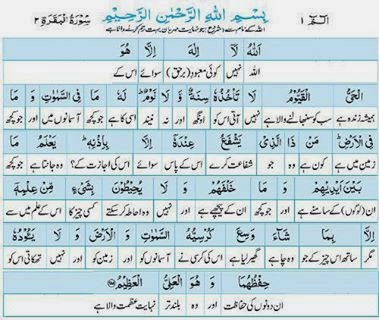 الٓمّٓ ١ بِسْمِ اللهِ الرَّحْمٰنِ الرَّحِيْمِ سُوْرَةُ الْبَقَرَةِ ٢
اللہ کے نام سے جو نہایت مہربان بہت رحم کرنے والا ہے
اَللهُ لَآ اِلٰهَ اِلَّا هُوَ
اللہ نہیں کوئی معبود (برحق) سوائے اس کے
اَلْحَيُّ الْقَيُّوْمُ لَا تَاْخُذُهٗ سِنَةٌ وَّ لَا نَوْمٌ لَهٗ مَا فِي السَّمٰوٰتِ وَ مَا
ہمیشہ زندہ ہے سب کو سنبھالنے والا ہے نہیں آتی اس کو اونگھ اور نہ نیند اسی کا ہے جو کچھ آسمانوں میں اور جو کچھ
فِي الْاَرْضِ مَنْ ذَا الَّذِيْ يَشْفَعُ عِنْدَهٗٓ اِلَّا بِاِذْنِهٖ يَعْلَمُ مَا
زمین میں ہے کون ہے وہ جو شفاعت کرے اس کے پاس سوائے اس کی اجازت کے؟ وہ جانتا ہے جو کچھ
بَيْنَ اَيْدِيْهِمْ وَ مَا خَلْفَهُمْ وَ لَا يُحِيْطُوْنَ بِشَيْءٍ مِّنْ عِلْمِهٖٓ
ان (لوگوں) کے سامنے ہے اور جو کچھ ان کے پیچھے ہے اور نہیں وہ احاطہ کر سکتے کسی چیز کا اس کے علم میں سے
اِلَّا بِمَا شَآءَ وَسِعَ كُرْسِيُّهُ السَّمٰوٰتِ وَ الْاَرْضَ وَ لَا يَـُٔوْدُهٗ
مگر ساتھ اس چیز کے جو وہ چاہے گھیر لیا ہے اس کی کرسی نے آسمانوں کو اور زمین کو اور نہیں تھکاتی اس کو
حِفْظُهُمَا وَ هُوَ الْعَلِيُّ الْعَظِيْمُ ٢٥٥
ان دونوں کی حفاظت اور وہ بلند تر نہایت عظمت والا ہے